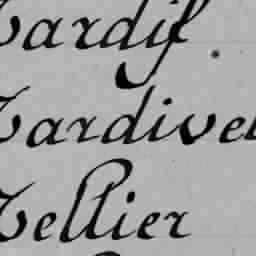 Tardif.
Tardivel
Tellier